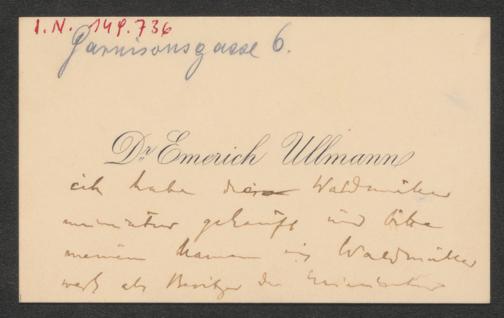 I.N. 149.736
Garnisonsgasse 6.
Dr Emerich Ullmann
ich habe diese Waldmüller
miniatur gekauft und bitte
meinen Namen ins Waldmüller
werk als Besitzer der Miniatur